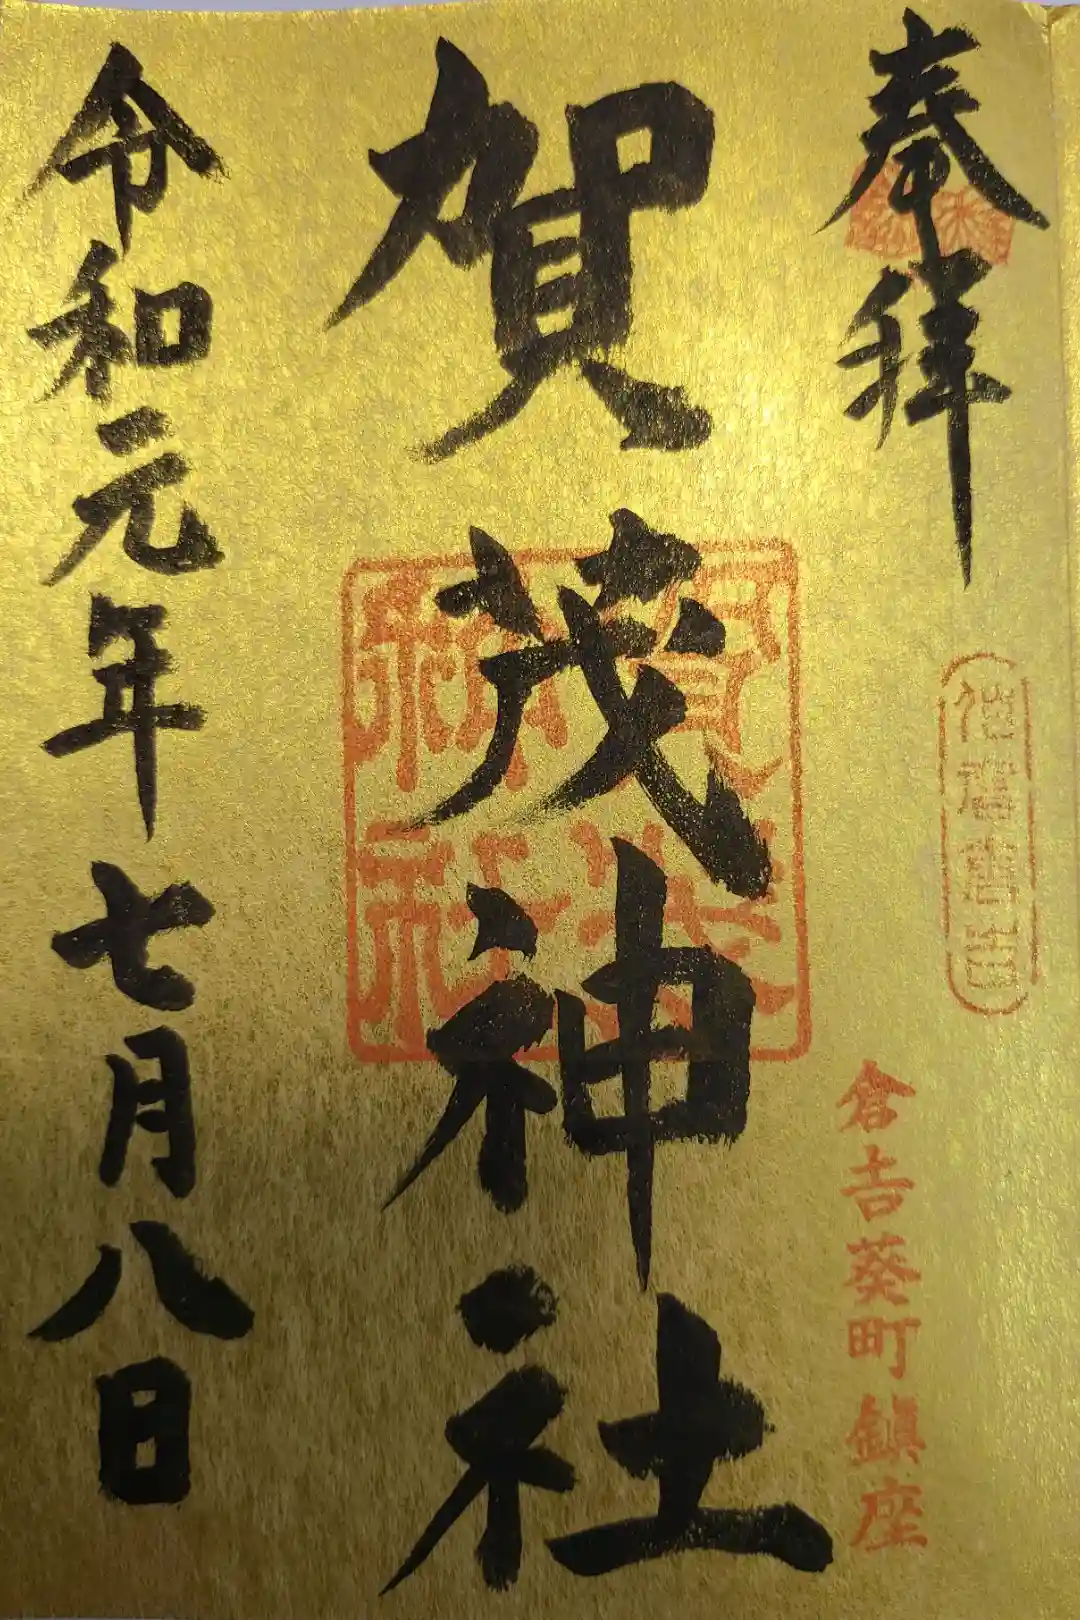 奉拝
倉吉葵町鎮座
賀茂神社
賀茂神社
令和元年七月八日